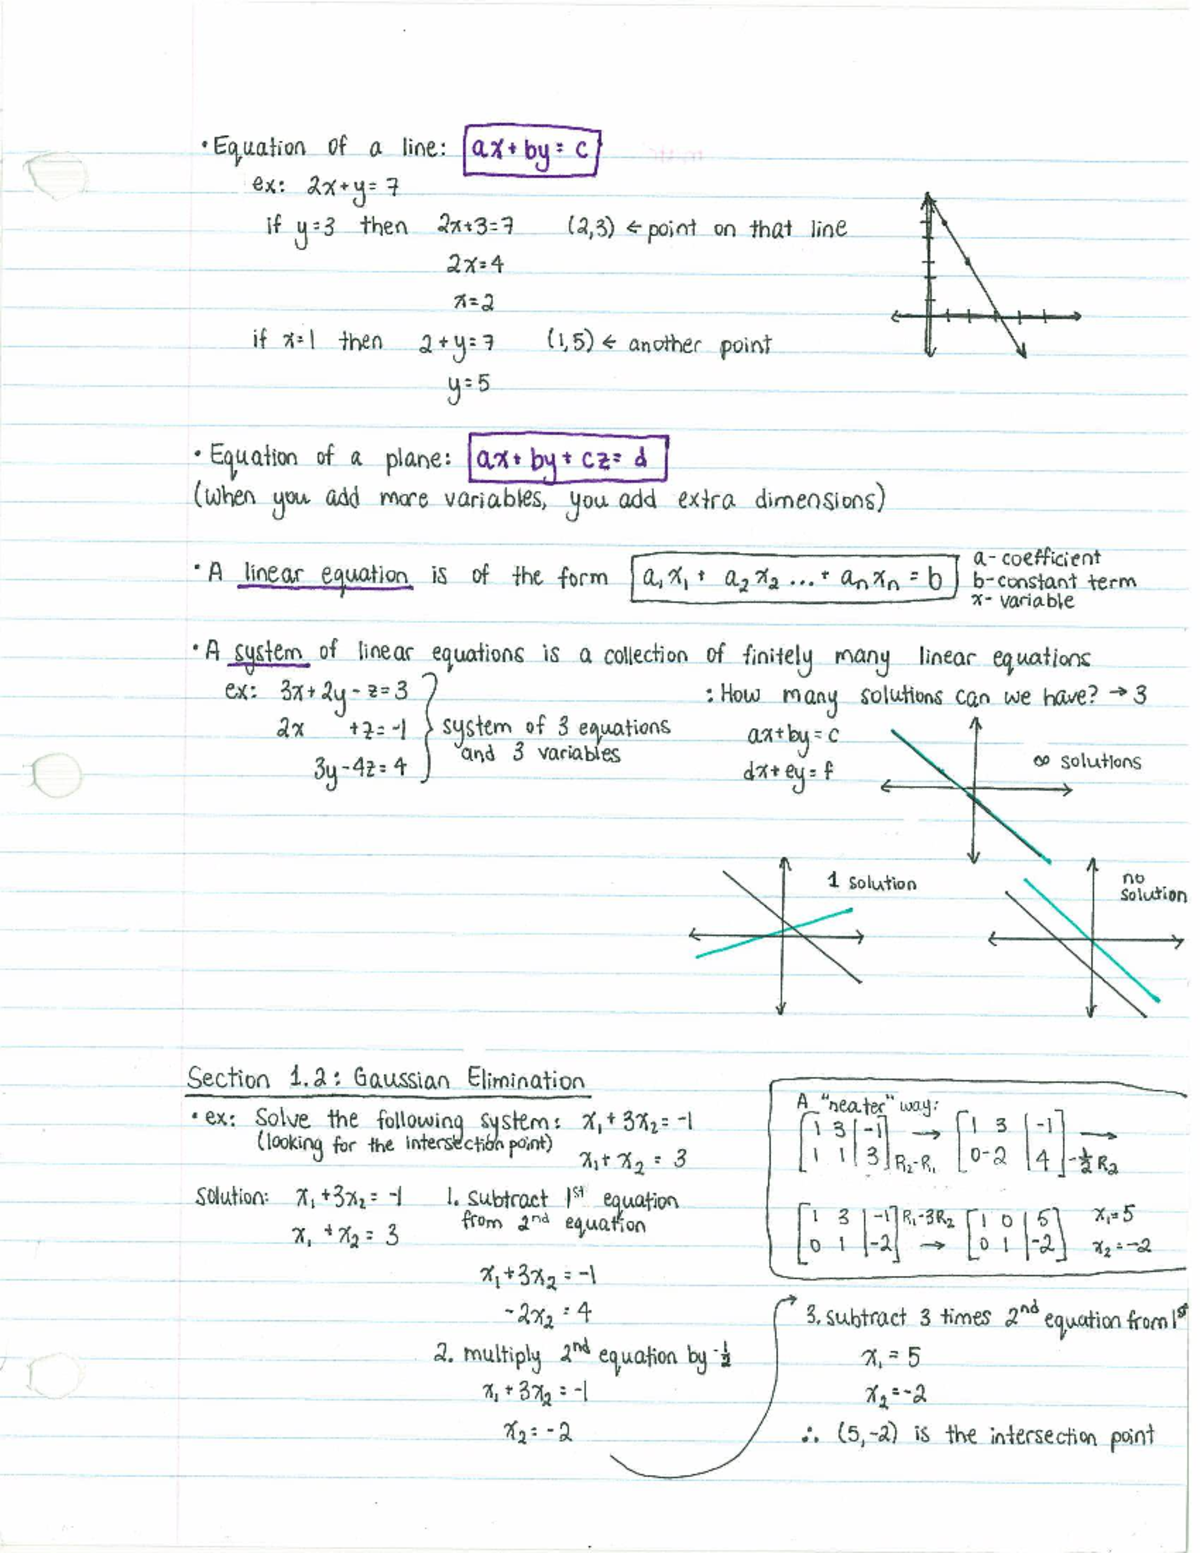 • Equation of a line: ax + by = c
ex: 2x+y=7
if y=3 then 2x+3=7 (2,3) ← point on that line
2x=4
x=2
if x=1 then 2+y=7 (1,5) ← another point
y=5
• Equation of a plane: ax + by + cz = d
(when you add more variables, you add extra dimensions)
• A linear equation is of the form a₁x₁ + a₂x₂ ... + aₙxₙ = b
a - coefficient
b - constant term
x - variable
• A system of linear equations is a collection of finitely many linear equations
ex: 3x+2y-z=3
2x +z=-1
3y-4z=4
system of 3 equations
and 3 variables
: How many solutions can we have? → 3
ax+by=c
dx+ey=f
∞ solutions
1 solution
no
solution
Section 1.2: Gaussian Elimination
• ex: Solve the following system: x₁+3x₂=-1
(looking for the intersection point) x₁+x₂=3
Solution: x₁+3x₂=-1 1. subtract 1st equation
x₁+x₂=3 from 2nd equation
x₁+3x₂=-1
-2x₂=4
2. multiply 2nd equation by -½
x₁+3x₂=-1
x₂=-2
A "neater" way:
[1 3 | -1] → [1 3 | -1] →
[1 1 | 3] R₂-R₁ [0 -2 | 4] -½R₂
[1 3 | -1] R₁-3R₂ [1 0 | 5] x₁=5
[0 1 | -2] → [0 1 | -2] x₂=-2
3. subtract 3 times 2nd equation from 1st
x₁=5
x₂=-2
∴ (5,-2) is the intersection point